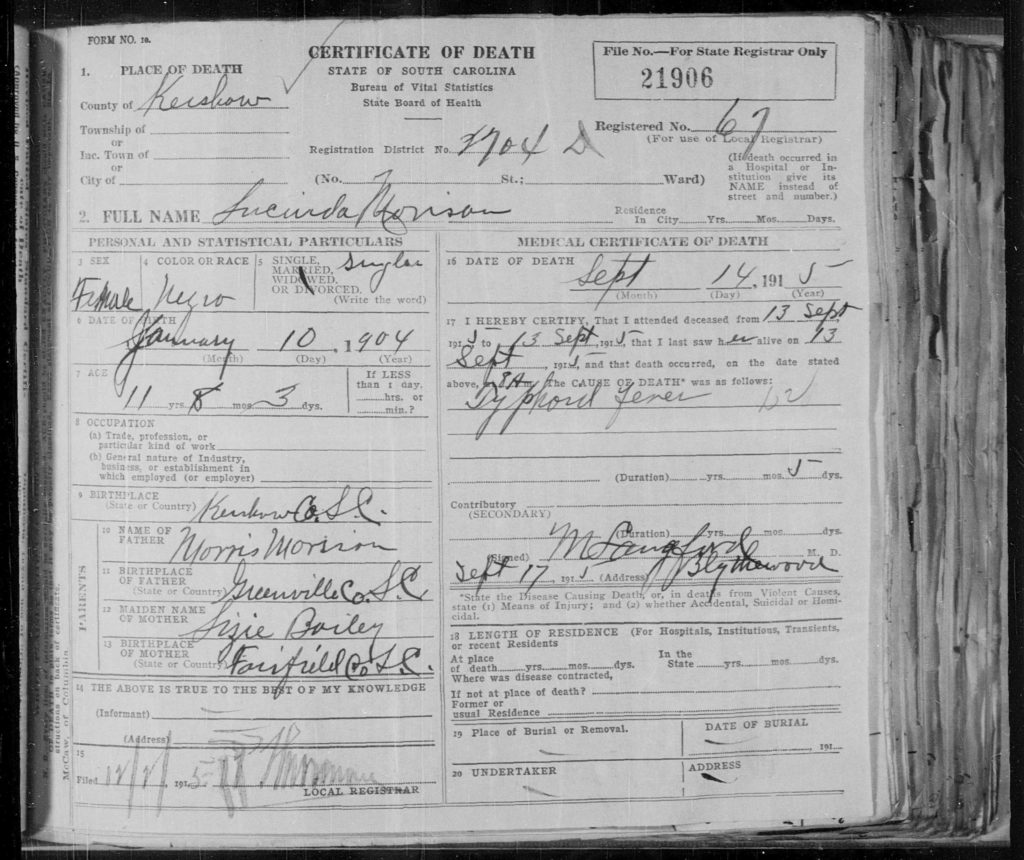 FORM NO. 10.
CERTIFICATE OF DEATH
STATE OF SOUTH CAROLINA
Bureau of Vital Statistics
State Board of Health
File No.—For State Registrar Only
21906
1. PLACE OF DEATH
County of Kershaw
Township of
or
Inc. Town of
or
City of
Registration District No. 2704 D
Registered No. 67
(For use of Local Registrar)
(If death occurred in a Hospital or Institution give its NAME instead of street and number.)
(No. St.; Ward)
2. FULL NAME Lucinda Morison
Residence
In City Yrs. Mos. Days.
PERSONAL AND STATISTICAL PARTICULARS
3 SEX
Female
4 COLOR OR RACE
Negro
5 SINGLE, MARRIED, WIDOWED, OR DIVORCED.
(Write the word)
Single
6 DATE OF BIRTH
January 10, 1904
(Month) (Day) (Year)
7 AGE
11 yrs. 8 mos. 3 dys.
If LESS than 1 day, hrs. or min.?
8 OCCUPATION
(a) Trade, profession, or particular kind of work
(b) General nature of Industry, business, or establishment in which employed (or employer)
9 BIRTHPLACE
(State or Country) Kershaw Co. S.C.
PARENTS
10 NAME OF FATHER
Morris Morison
11 BIRTHPLACE OF FATHER
(State or Country) Greenville Co. S.C.
12 MAIDEN NAME OF MOTHER
Lizie Bailey
13 BIRTHPLACE OF MOTHER
(State or Country) Fairfield Co S.C.
14 THE ABOVE IS TRUE TO THE BEST OF MY KNOWLEDGE
(Informant)
(Address)
15
Filed 191 5
LOCAL REGISTRAR
MEDICAL CERTIFICATE OF DEATH
16 DATE OF DEATH
Sept 14, 1915
(Month) (Day) (Year)
17 I HEREBY CERTIFY, That I attended deceased from 13 Sept
1915 to 13 Sept, 1915, that I last saw her alive on 13
Sept, 1915, and that death occurred, on the date stated
above, at 8 A m. The CAUSE OF DEATH* was as follows:
Typhoid fever
(Duration) yrs. mos. 5 dys.
Contributory
(SECONDARY)
(Duration) yrs. mos. dys.
(Signed) M Langford M. D.
Sept 17, 1915 (Address) Blythewood
*State the Disease Causing Death, or, in deaths from Violent Causes, state (1) Means of Injury; and (2) whether Accidental, Suicidal or Homicidal.
18 LENGTH OF RESIDENCE (For Hospitals, Institutions, Transients, or recent Residents
At place of death yrs. mos. dys.
In the State yrs. mos. dys.
Where was disease contracted,
If not at place of death?
Former or
usual Residence
19 Place of Burial or Removal.
DATE OF BURIAL
191
20 UNDERTAKER
ADDRESS
McCaw, of Columbia